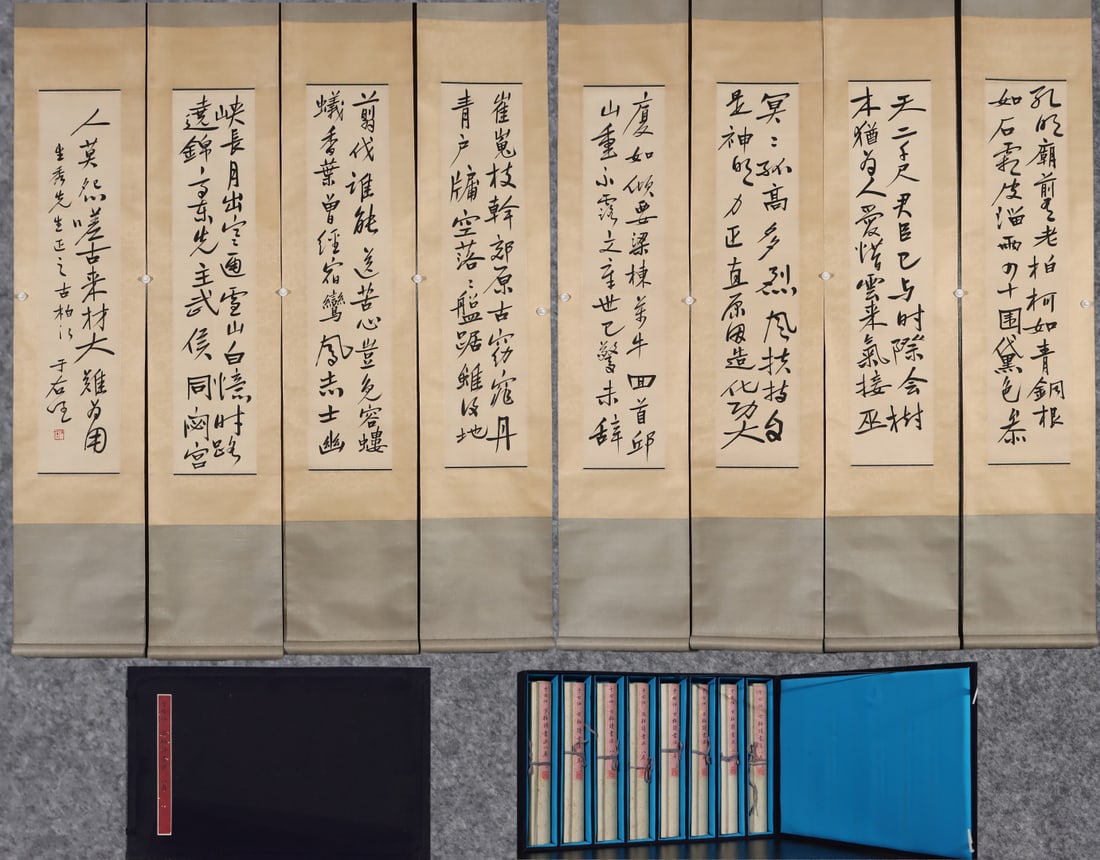 孔明廟前有老柏柯如青銅根
如石霜皮溜雨四十围黛色参
天二千尺君臣已与时際会樹
木猶为人愛惜雲来氣接巫
冥〻孤高多烈风扶持自
是神明力正直原因造化功大
廈如傾要梁棟萬牛回首邱
山重不露文章世已驚未辞
崔嵬枝幹郊原古窈窕丹
青户牖空落〻盤踞雖得地
剪伐谁能送苦心豈免容螻
蟻香葉曾经宿鸞鳳志士幽
峡長月出寒通雪山白憶昨路
遶錦亭東先主武侯同閟宫
人莫怨嗟古来材大難为用
生秀先生正之古柏行 于右任